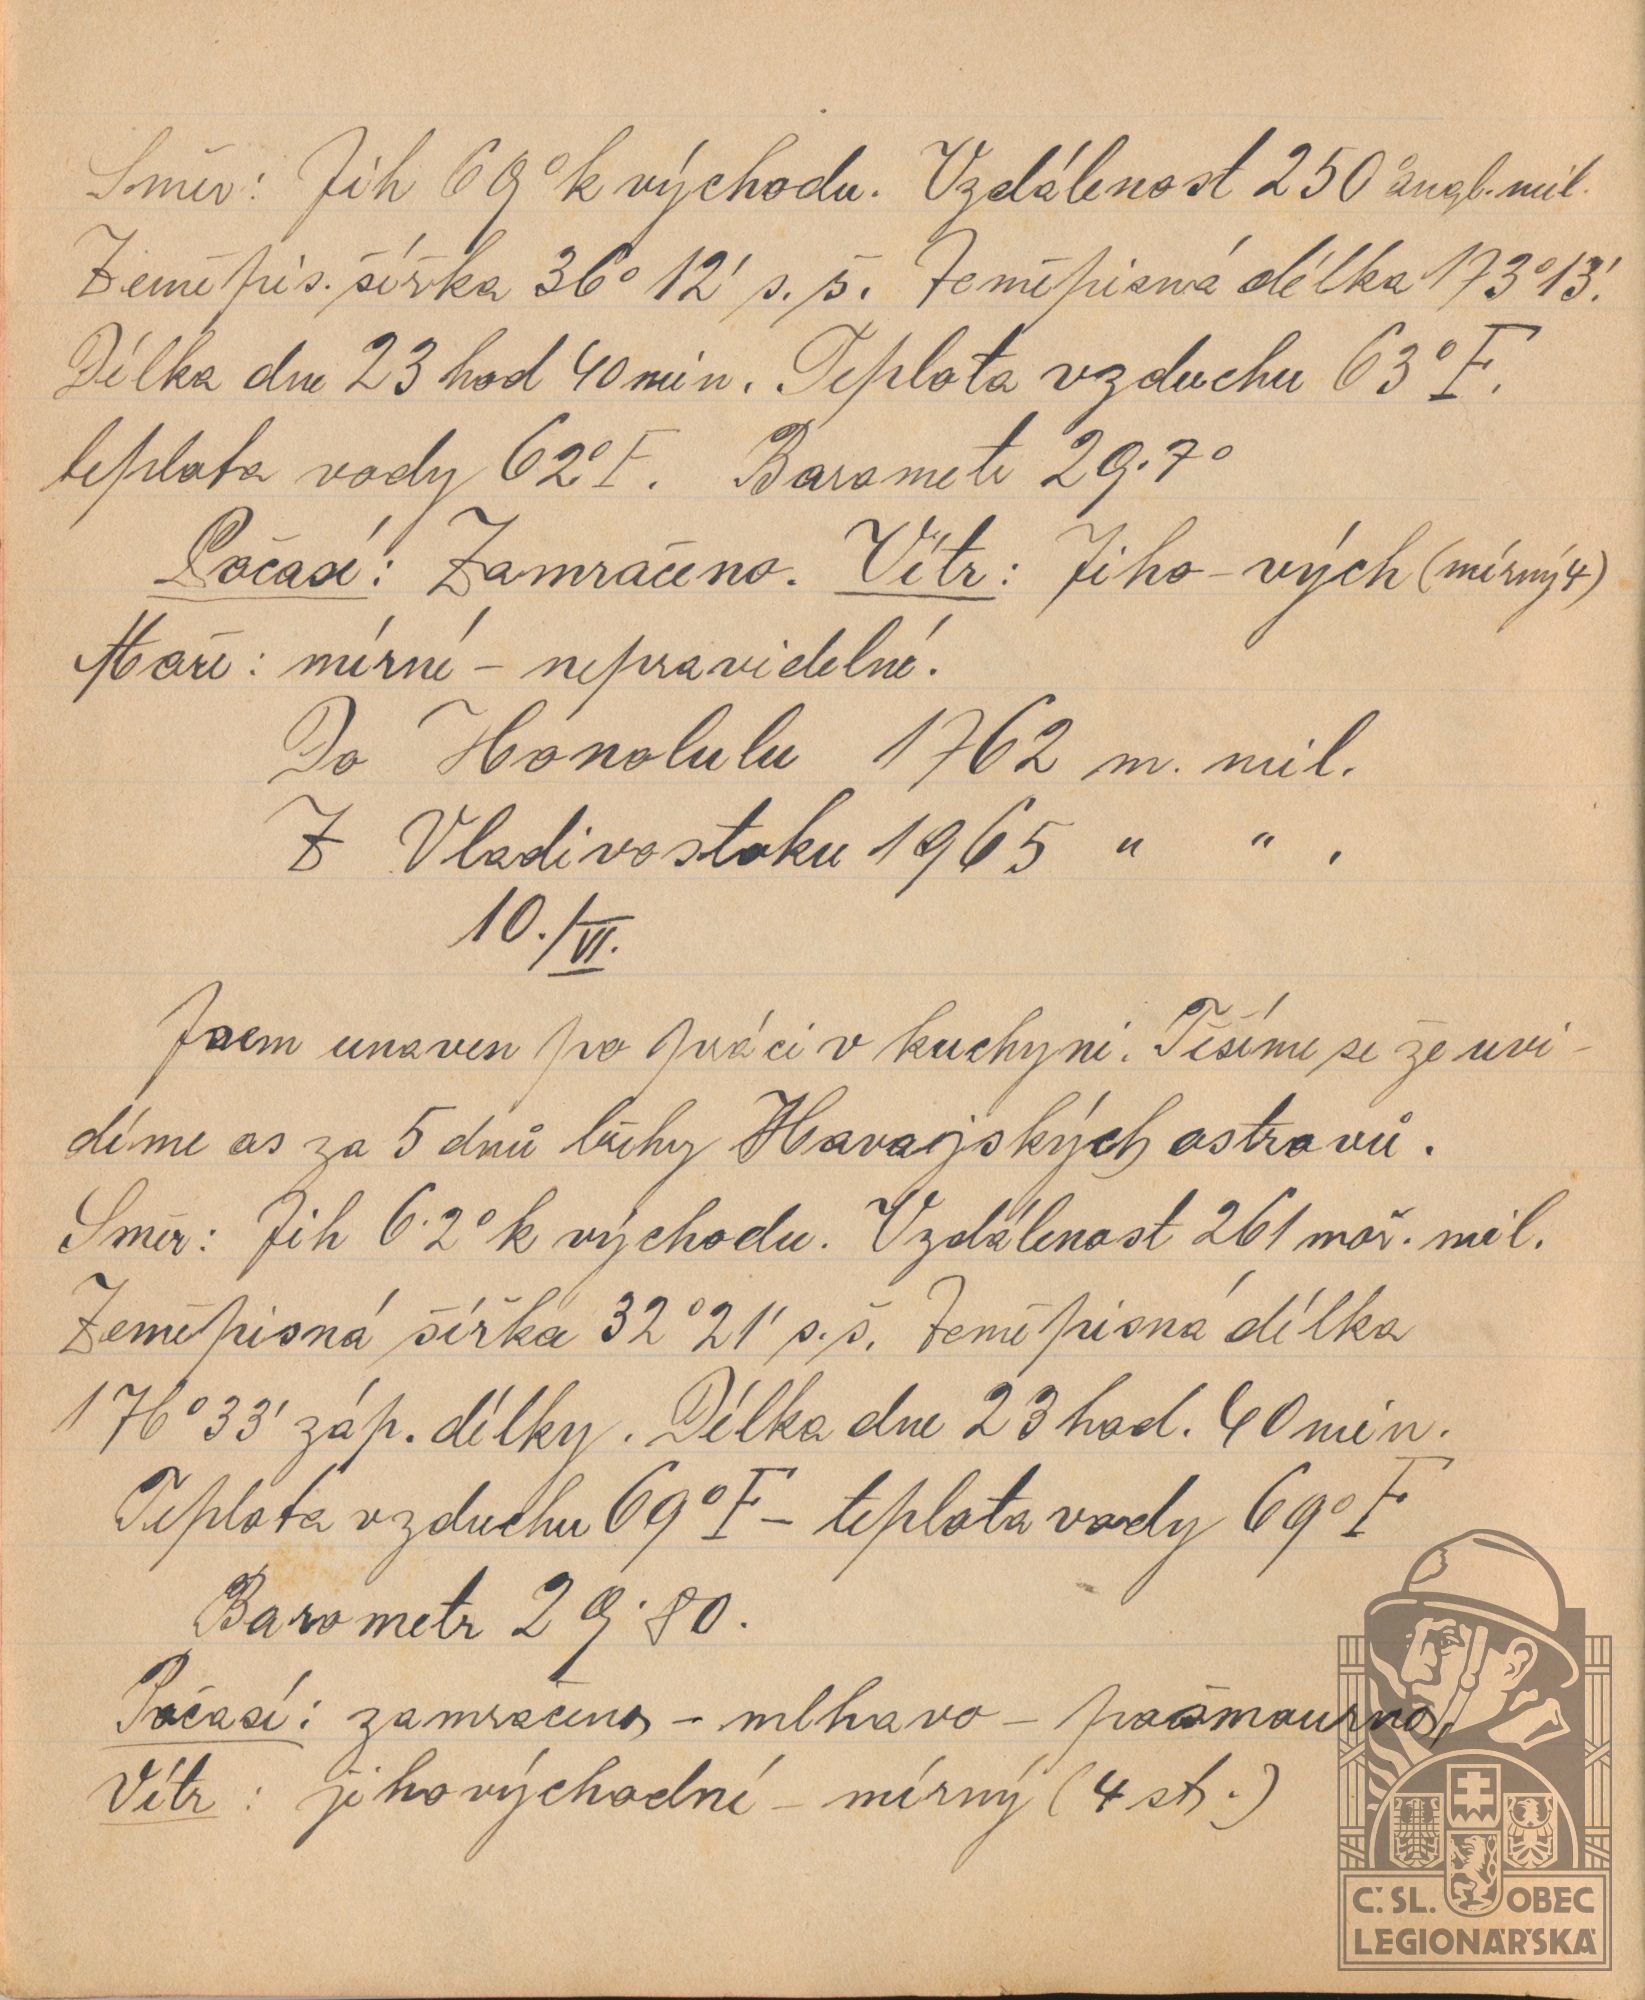 Směr: Jih 69° k východu. Vzdálenost 250 angl. mil.
Zeměpis. šířka 36° 12' s. š. Zeměpisná délka 173° 13'.
Délka dne 23 hod 40 min. Teplota vzduchu 63° F.
teplota vody 62° F. Barometr 29.7°
Počasí: Zamračeno. Vítr: Jiho-vých (mírný 4)
Moře: mírné – nepravidelné.
Do Honolulu 1762 m. mil.
Z Vladivostoku 1965 " " .
10./VI.
Jsem unaven po práci v kuchyni. Těšíme se že uvi-
díme as za 5 dnů břehy Havajských ostrovů.
Směr: Jih 6.2° k východu. Vzdálenost 261 moř. mil.
Zeměpisná šířka 32° 21' s. š. Zeměpisná délka
176° 33' záp. délky. Délka dne 23 hod. 40 min.
Teplota vzduchu 69° F – teplota vody 69° F
Barometr 29.80.
Počasí: zamračeno – mlhavo –
Vítr: jihovýchodní – mírný (4 st.)
Č. SL. OBEC
LEGIONÁŘSKÁ